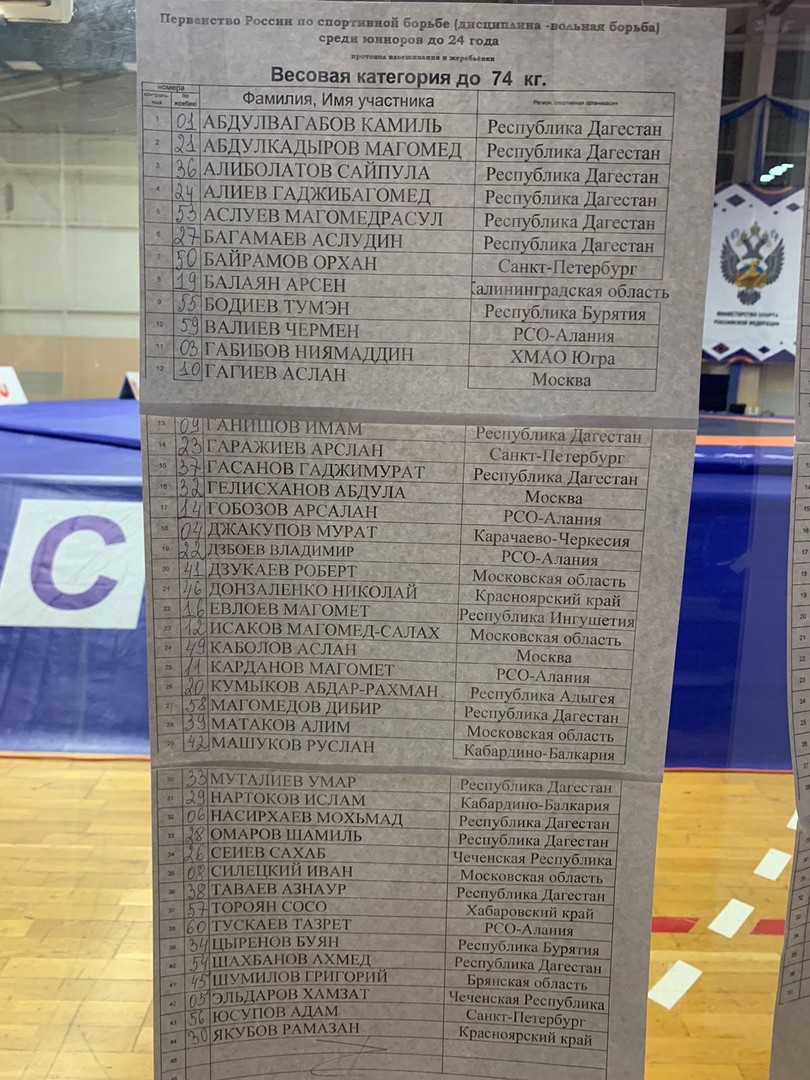 Первенство России по спортивной борьбе (дисциплина -вольная борьба)
среди юниоров до 24 года
протокол взвешивания и жеребьёвки
Весовая категория до 74 кг.
номера
контрольный по жребию Фамилия, Имя участника Регион, спортивная организация
1 01 АБДУЛВАГАБОВ КАМИЛЬ Республика Дагестан
2 21 АБДУЛКАДЫРОВ МАГОМЕД Республика Дагестан
3 36 АЛИБОЛАТОВ САЙПУЛА Республика Дагестан
4 24 АЛИЕВ ГАДЖИБАГОМЕД Республика Дагестан
5 53 АСЛУЕВ МАГОМЕДРАСУЛ Республика Дагестан
6 27 БАГАМАЕВ АСЛУДИН Республика Дагестан
7 50 БАЙРАМОВ ОРХАН Санкт-Петербург
8 19 БАЛАЯН АРСЕН Калининградская область
9 55 БОДИЕВ ТУМЭН Республика Бурятия
10 59 ВАЛИЕВ ЧЕРМЕН РСО-Алания
11 03 ГАБИБОВ НИЯМАДДИН ХМАО Югра
12 10 ГАГИЕВ АСЛАН Москва
13 09 ГАНИШОВ ИМАМ Республика Дагестан
14 23 ГАРАЖИЕВ АРСЛАН Санкт-Петербург
15 37 ГАСАНОВ ГАДЖИМУРАТ Республика Дагестан
16 32 ГЕЛИСХАНОВ АБДУЛА Москва
17 14 ГОБОЗОВ АРСАЛАН РСО-Алания
18 04 ДЖАКУПОВ МУРАТ Карачаево-Черкесия
19 22 ДЗБОЕВ ВЛАДИМИР РСО-Алания
20 41 ДЗУКАЕВ РОБЕРТ Московская область
21 46 ДОНЗАЛЕНКО НИКОЛАЙ Красноярский край
22 16 ЕВЛОЕВ МАГОМЕТ Республика Ингушетия
23 12 ИСАКОВ МАГОМЕД-САЛАХ Московская область
24 49 КАБОЛОВ АСЛАН Москва
25 11 КАРДАНОВ МАГОМЕТ РСО-Алания
26 20 КУМЫКОВ АБДАР-РАХМАН Республика Адыгея
27 58 МАГОМЕДОВ ДИБИР Республика Дагестан
28 39 МАТАКОВ АЛИМ Московская область
29 42 МАШУКОВ РУСЛАН Кабардино-Балкария
30 33 МУТАЛИЕВ УМАР Республика Дагестан
31 29 НАРТОКОВ ИСЛАМ Кабардино-Балкария
32 06 НАСИРХАЕВ МОХЬМАД Республика Дагестан
33 28 ОМАРОВ ШАМИЛЬ Республика Дагестан
34 26 СЕИЕВ САХАБ Чеченская Республика
35 08 СИЛЕЦКИЙ ИВАН Московская область
36 38 ТАВАЕВ АЗНАУР Республика Дагестан
37 57 ТОРОЯН СОСО Хабаровский край
38 60 ТУСКАЕВ ТАЗРЕТ РСО-Алания
39 34 ЦЫРЕНОВ БУЯН Республика Бурятия
40 54 ШАХБАНОВ АХМЕД Республика Дагестан
41 45 ШУМИЛОВ ГРИГОРИЙ Брянская область
42 05 ЭЛЬДАРОВ ХАМЗАТ Чеченская Республика
43 56 ЮСУПОВ АДАМ Санкт-Петербург
44 30 ЯКУБОВ РАМАЗАН Красноярский край
45
МИНИСТЕРСТВО СПОРТА
РОССИЙСКОЙ ФЕДЕРАЦИИ
С